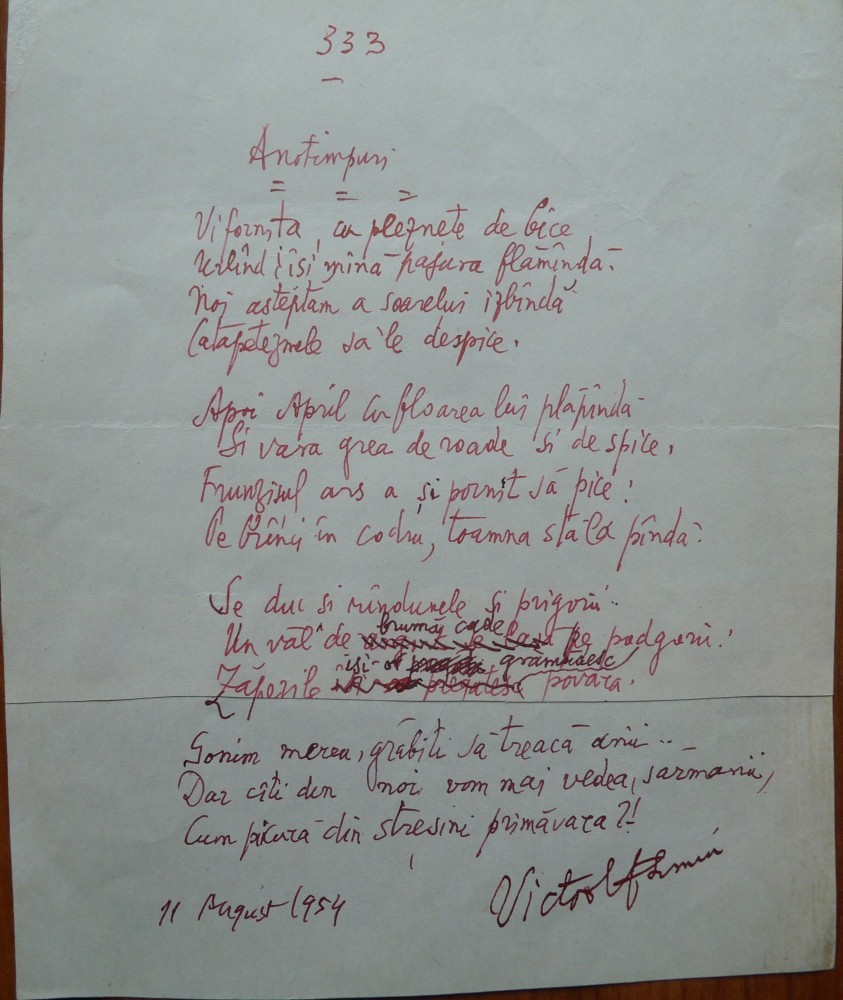 333
Anotimpuri
Vifornița, cu pleznete de bice,
Urlînd își mînă pajura flămîndă.
Noi așteptam a soarelui izbîndă
Catapeteznele să le despice.
Apoi April cu floarea lui plăpîndă
Și vara grea de roade și de spice,
Frunzișul ars a și pornit să pice!
Pe brînci în codru, toamna stă la pîndă.
Se duc și rîndunele și prigorii..
Un văl de brumă cade pe podgorii.
Zăpezile își grămădesc povara.
Gonim mereu, grăbiți să treacă anii..
Dar cîți din noi vom mai vedea, sărmanii,
Cum picură din streșini primăvara?!
11 August 1954
Victor Eftimiu